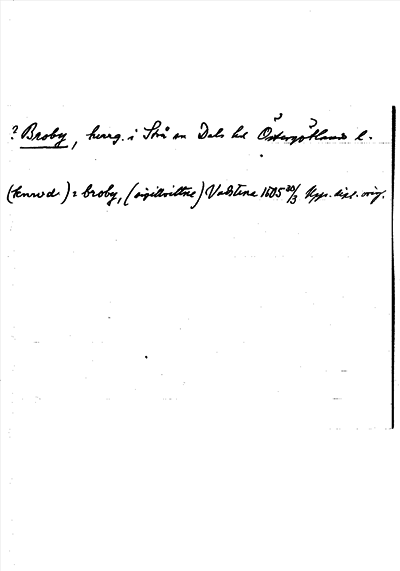 ? Broby, herrg. i Strå sn Dals hd Östergötlands l.
(knud) i broby, (sigillvittne) Vadstena 1405 20/3 Upps. dipl. orig.